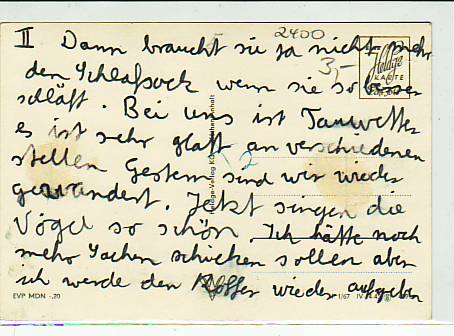 2400
II Dann braucht sie ja nicht mehr
3,-
Heldge
KARTE
den Schlafsack wenn sie so besser
schläft. Bei uns ist Tauwetter
es ist sehr glatt an verschiedenen
stellen Gestern sind wir wieder
gewandert. Jetzt singen die
Vögel so schön. Ich hätte noch
mehr Sachen schicken sollen aber
ich werde den Koffer wieder aufgeben
EVP MDN -,20
1/67